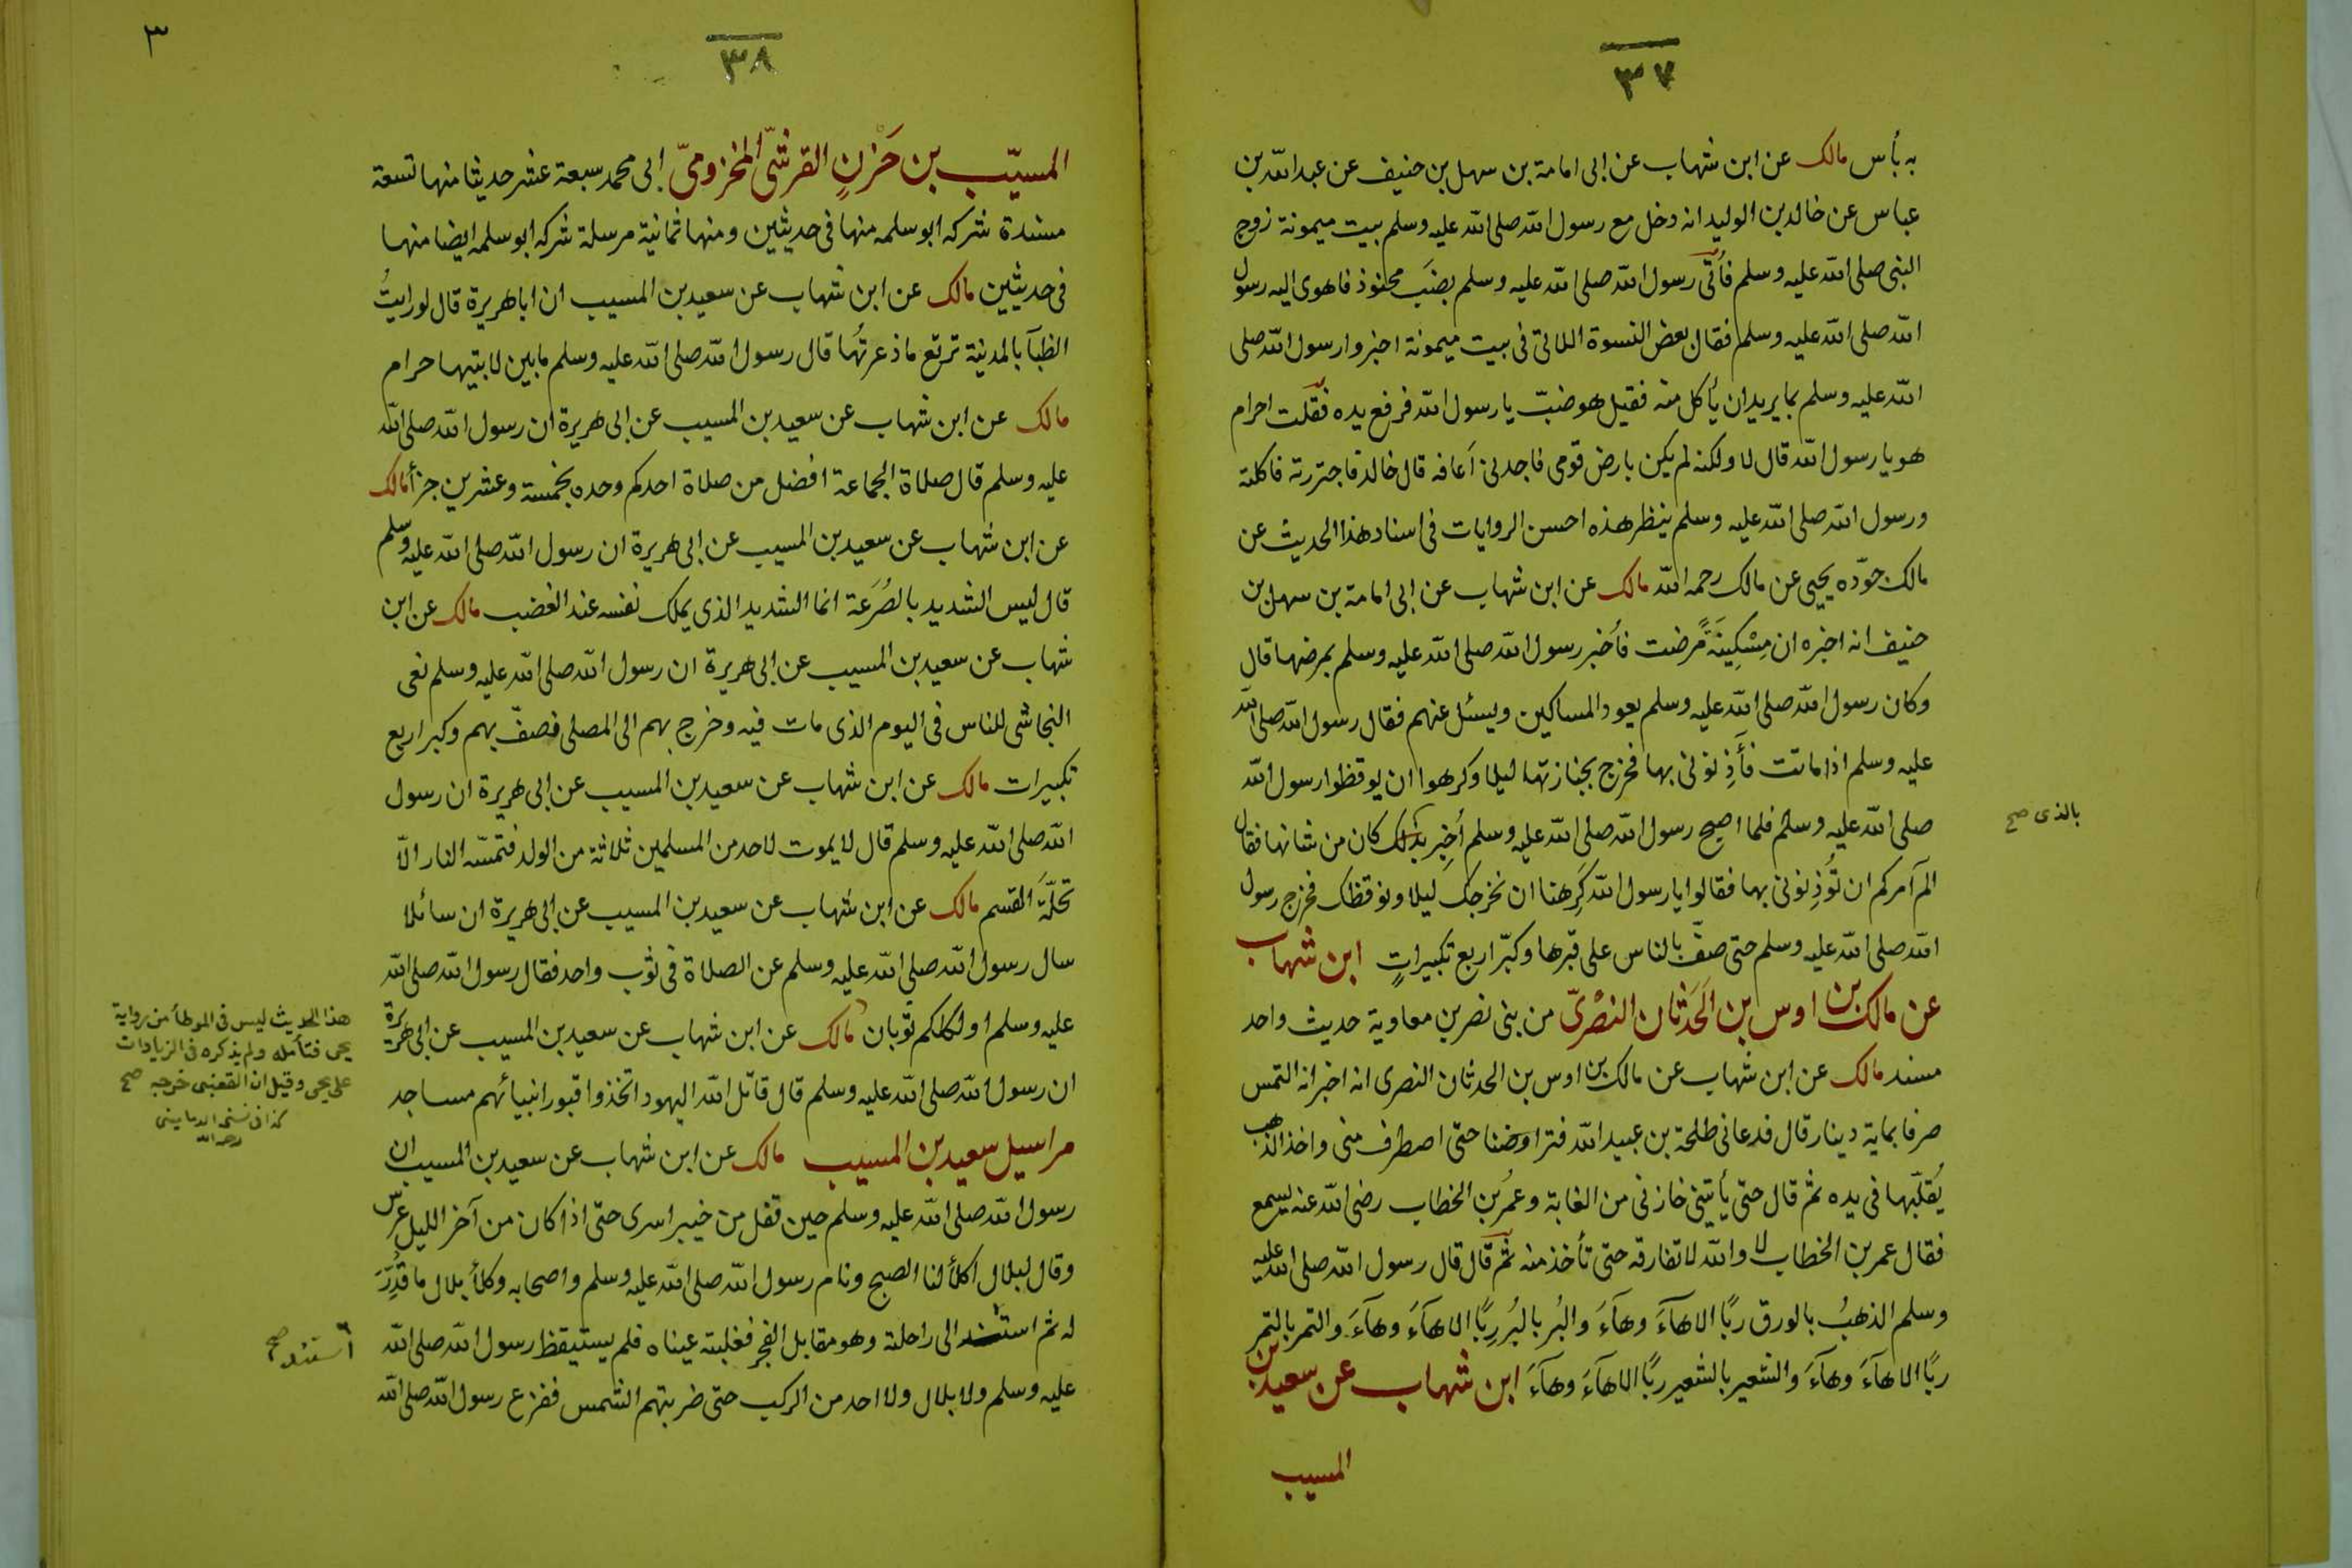 ٣٧
به بأس مالك عن ابن شهاب عن ابى امامة بن سهل بن حنيف عن عبد الله بن
عباس عن خالد بن الوليد انه دخل مع رسول الله صلى الله عليه وسلم بيت ميمونة زوج
النبى صلى الله عليه وسلم فأتى رسول الله صلى الله عليه وسلم بضب محنوذ فاهوى اليه رسول
الله صلى الله عليه وسلم فقال بعض النسوة اللاتى فى بيت ميمونة اخبروا رسول الله صلى
الله عليه وسلم بما يريد ان يأكل منه فقيل هو ضبّ يا رسول الله فرفع يده فقلت احرام
هو يا رسول الله قال لا ولكنه لم يكن بارض قومى فاجدنى اَعافه قال خالد فاجتررته فاكلته
ورسول الله صلى الله عليه وسلم ينظر هذه احسن الروايات فى اسناد هذا الحديث عن
مالك جوّده يحيى عن مالك رحمه الله مالك عن ابن شهاب عن ابى امامة بن سهل بن
حنيف انه اخبره ان مِسْكِينَةً مرضت فأُخبر رسول الله صلى الله عليه وسلم بمرضها قال
وكان رسول الله صلى الله عليه وسلم يعود المساكين ويسئل عنهم فقال رسول الله صلى الله
عليه وسلم اذا ماتت فَأَذِنونى بها فخرج بجنازتها ليلا وكرهوا ان يوقظوا رسول الله
صلى الله عليه وسلم فلما اصبح رسول الله صلى الله عليه وسلم أخبِر بذلك كان من شانها فقال
بالذى صح
الم آمركم ان تُؤذِنونى بها فقالوا يا رسول الله كَرِهنا ان نخرجك ليلا ونوقظك فخرج رسول
الله صلى الله عليه وسلم حتى صفّ بالناس على قبرها وكبّر اربع تكبيراتٍ ابن شهاب
عن مالك بن اوس بن الحَدَثان النصْرىّ من بنى نصر بن معاوية حديث واحد
مسند مالك عن ابن شهاب عن مالك بن اوس بن الحدثان النصرى انه اخبر انه التمس
صرفا بماية دينار قال فدعانى طلحة بن عبيد الله فتراوضنا حتى اصطرف منى واخذ الذهب
يُقلّبها فى يده ثم قال حتى يأتينى خازنى من الغابة وعمُر بن الخطاب رضى الله عنه يسمع
فقال عمر بن الخطاب لا والله لا تفارقه حتى تأخذ منه ثم قال قال رسول الله صلى الله عليه
وسلم الذهبُ بالورق ربًا الا هآءَ وهآءَ والبُر بالبُر رِبًا الا هآءَ وهآءَ والتمر بالتمر
ربًا الا هآءَ وهآءَ والشعير بالشعير ربًا الا هآءَ وهآءَ ابن شهاب عن سعيد بن
المسيب
٣
٣٨
المسيّب بن حَزْنٍ القرشىّ المخزومىّ ابى محمد سبعة عشر حديثا منها تسعة
مسندة شركه ابو سلمه منها فى حديثين ومنها ثمانية مرسلة شركه ابو سلمه ايضا منها
فى حديثين مالك عن ابن شهاب عن سعيد بن المسيب ان ابا هريرة قال لو رايتُ
الظبآ بالمدينة ترتع ما ذعرتُها قال رسول الله صلى الله عليه وسلم ما بين لابتيها حرام
مالك عن ابن شهاب عن سعيد بن المسيب عن ابى هريرة ان رسول الله صلى الله
عليه وسلم قال صلاة الجماعة افضل من صلاة احدكم وحده بخمسة وعشرين جزأ مالك
عن ابن شهاب عن سعيد بن المسيب عن ابى هريرة ان رسول الله صلى الله عليه وسلم
قال ليس الشديد بالصُرَعة انما الشديد الذى يملك نفسه عند الغضب مالك عن ابن
شهاب عن سعيد بن المسيب عن ابى هريرة ان رسول الله صلى الله عليه وسلم نعى
النجاشى للناس فى اليوم الذى مات فيه وخرج بهم الى المصلى فصفّ بهم وكبر اربع
تكبيرات مالك عن ابن شهاب عن سعيد بن المسيب عن ابى هريرة ان رسول
الله صلى الله عليه وسلم قال لا يموت لاحد من المسلمين ثلاثة من الولد فتمسّه النار الّا
تحلّةَ القسم مالك عن ابن شهاب عن سعيد بن المسيب عن ابى هريرة ان سائلا
سال رسول الله صلى الله عليه وسلم عن الصلاة فى ثوب واحد فقال رسول الله صلى الله
عليه وسلم اولكلكم ثوبان مالك عن ابن شهاب عن سعيد بن المسيب عن ابى هريرة
ان رسول الله صلى الله عليه وسلم قال قاتل الله اليهود اتخذوا قبور انبيائهم مساجد
هذا الحديث ليس فى الموطأ من رواية
يحيى فتأمله ولم يذكره فى الزيادات
على يحيى وقيل ان القعنبى خرجه صح
كذا فى نسخه الدمامينى
رحمه الله
مراسيل سعيد بن المسيب مالك عن ابن شهاب عن سعيد بن المسيب ان
رسول الله صلى الله عليه وسلم حين قفل من خيبر اسرى حتى اذا كان من آخر الليل عرس
وقال لبلال اكلأ لنا الصبح ونام رسول الله صلى الله عليه وسلم واصحابه وكلأ بلال ما قُدِّرَ
له ثم استند الى راحلته وهو مقابل الفجر فغلبته عيناه فلم يستيقظ رسول الله صلى الله
استند صح
عليه وسلم ولا بلال ولا احد من الركب حتى ضربتهم الشمس ففزع رسول الله صلى الله